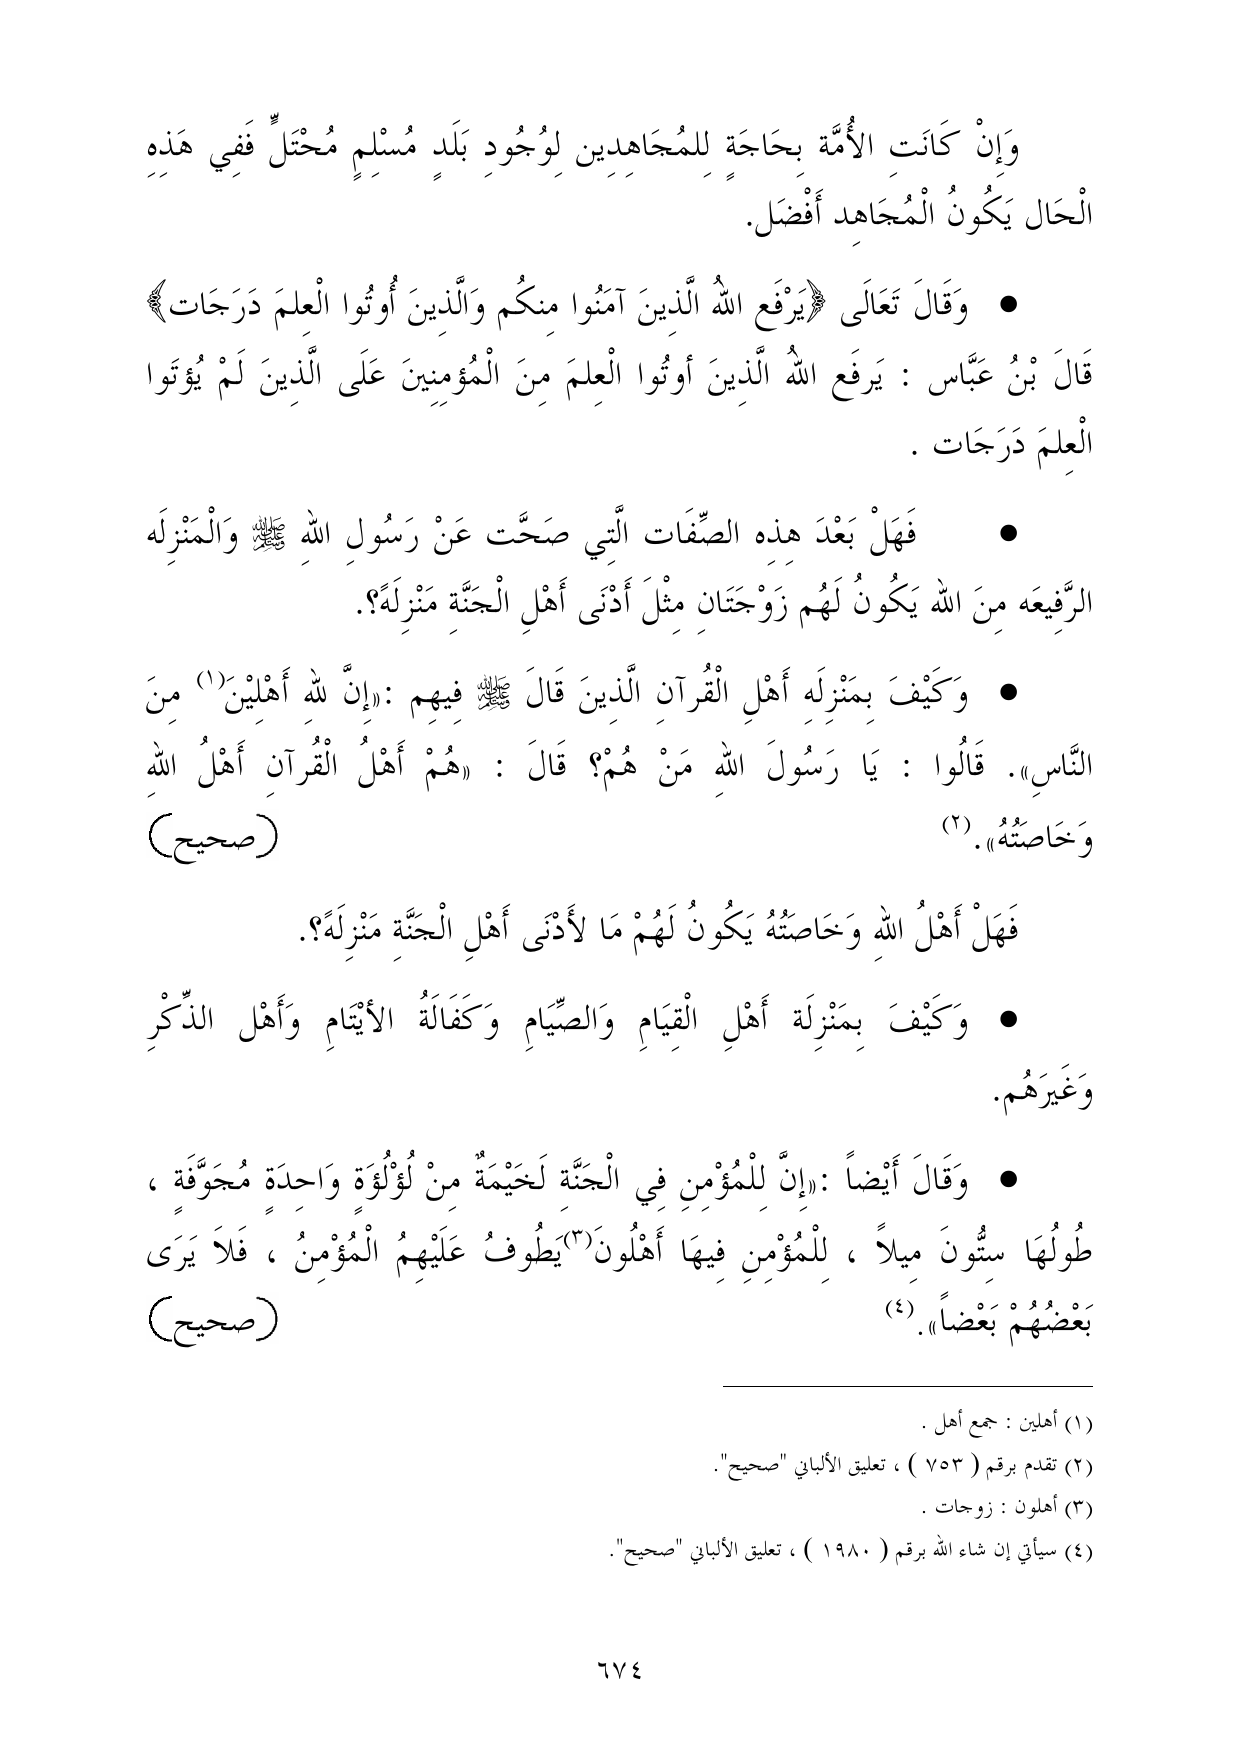 وَإِنْ كَانَتِ الأُمَّة بِحَاجَةٍ لِلمُجَاهِدِين لِوُجُودِ بَلَدٍ مُسْلِمٍ مُحْتَلٍّ فَفِي هَذِهِ
الْحَال يَكُونُ الْمُجَاهِد أَفْضَل.
● وَقَالَ تَعَالَى ﴿يَرْفَع اللهُ الَّذِينَ آمَنُوا مِنكُم وَالَّذِينَ أُوتُوا الْعِلمَ دَرَجَات﴾
قَالَ بْنُ عَبَّاس : يَرفَع اللهُ الَّذِينَ أوتُوا الْعِلمَ مِنَ الْمُؤمِنِينَ عَلَى الَّذِينَ لَمْ يُؤتَوا
الْعِلمَ دَرَجَات .
● فَهَلْ بَعْدَ هِذِه الصِّفَات الَّتِي صَحَّت عَنْ رَسُولِ اللهِ ﷺ وَالْمَنْزِلَه
الرَّفِيعَه مِنَ الله يَكُونُ لَهُم زَوْجَتَانِ مِثْلَ أَدْنَى أَهْلِ الْجَنَّةِ مَنْزِلَةً؟.
● وَكَيْفَ بِمَنْزِلَهِ أَهْلِ الْقُرآنِ الَّذِينَ قَالَ ﷺ فِيهِم :«إِنَّ للهِ أَهْلِيْنَ(١) مِنَ
النَّاسِ». قَالُوا : يَا رَسُولَ اللهِ مَنْ هُمْ؟ قَالَ : «هُمْ أَهْلُ الْقُرآنِ أَهْلُ اللهِ
وَخَاصَتُهُ».(٢) (صحيح)
فَهَلْ أَهْلُ اللهِ وَخَاصَتُهُ يَكُونُ لَهُمْ مَا لأَدْنَى أَهْلِ الْجَنَّةِ مَنْزِلَةً؟.
● وَكَيْفَ بِمَنْزِلَة أَهْلِ الْقِيَامِ وَالصِّيَامِ وَكَفَالَةُ الأيْتَامِ وَأَهْل الذِّكْرِ
وَغَيرَهُم.
● وَقَالَ أَيْضاً :«إِنَّ لِلْمُؤْمِنِ فِي الْجَنَّةِ لَخَيْمَةٌ مِنْ لُؤْلُؤَةٍ وَاحِدَةٍ مُجَوَّفَةٍ ،
طُولُهَا سِتُّونَ مِيلاً ، لِلْمُؤْمِنِ فِيهَا أَهْلُونَ(٣)يَطُوفُ عَلَيْهِمُ الْمُؤْمِنُ ، فَلاَ يَرَى
بَعْضُهُمْ بَعْضاً».(٤) (صحيح)
(١) أهلين : جمع أهل .
(٢) تقدم برقم ( ٧٥٣ ) ، تعليق الألباني "صحيح".
(٣) أهلون : زوجات .
(٤) سيأتي إن شاء الله برقم ( ١٩٨٠ ) ، تعليق الألباني "صحيح".
٦٧٤